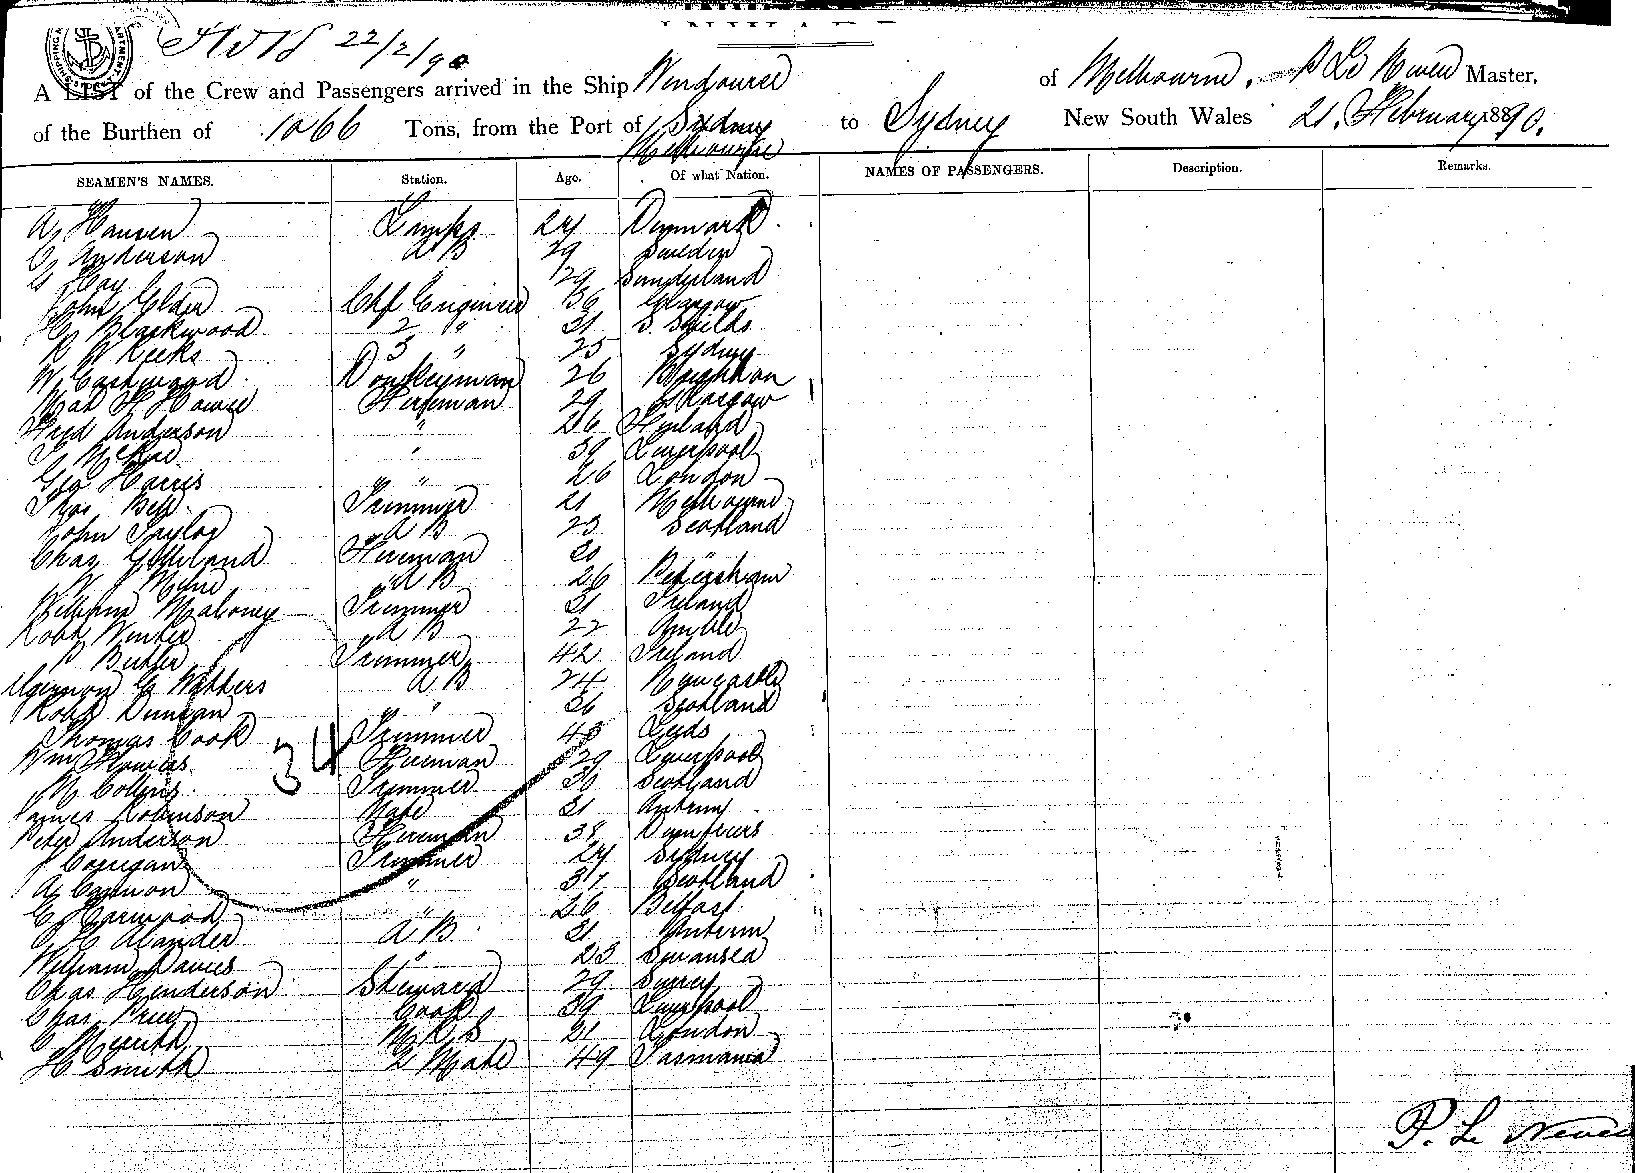 22/2/90
A LIST of the Crew and Passengers arrived in the Ship Wendouree of Melbourne, P Le Neveu Master,
of the Burthen of 1066 Tons, from the Port of Sydney Melbourne to Sydney New South Wales 21 February 1890.
SEAMEN'S NAMES. Station. Age. Of what Nation. NAMES OF PASSENGERS. Description. Remarks.
A Hansen Lamps 24 Denmark
C Anderson A B 29 Sweden
G Hay " 29 Sunderland
John Elder Chf Engineer 36 Glasgow
H Blackwood 2 " 31 S. Shields
R W Keeks 3 " 25 Sydney
W Eastwood Donkeyman 26 Brighton
H Howie Fireman 29 Glasgow
Fred Anderson " 26 Finland
McRae " 39 Liverpool
Geo Harris " 26 London
Thos Bell Trimmer 21 Melbourne
John Taylor A B 23 Scotland
Chas Gilleland Fireman 20 "
W J " A B 26 Petersham
William Mahoney Trimmer 31 Ireland
Robt Winter A B 22 Amble
P Butler Trimmer 42 Ireland
Algernon G Withers A B 24 Newcastle
Robt Duncan " 36 Scotland
Thomas Cook Trimmer 43 Leeds
Wm Flowers Fireman 29 Liverpool
M Collins Trimmer 30 Scotland
James Robinson Mate 31 Antrim
Peter Anderson Fireman 38 Dumfries
J Corrigan Trimmer 24 Sydney
A Cannon " 37 Scotland
C Harwood " 26 Belfast
C H Alander A B 21 Antrim
William Davies " 23 Swansea
Chas Henderson Steward 29 Surrey
Chas Price Cook 39 Liverpool
C 21 London
H Smith 2 Mate 49 Tasmania
34
P. Le Neveu